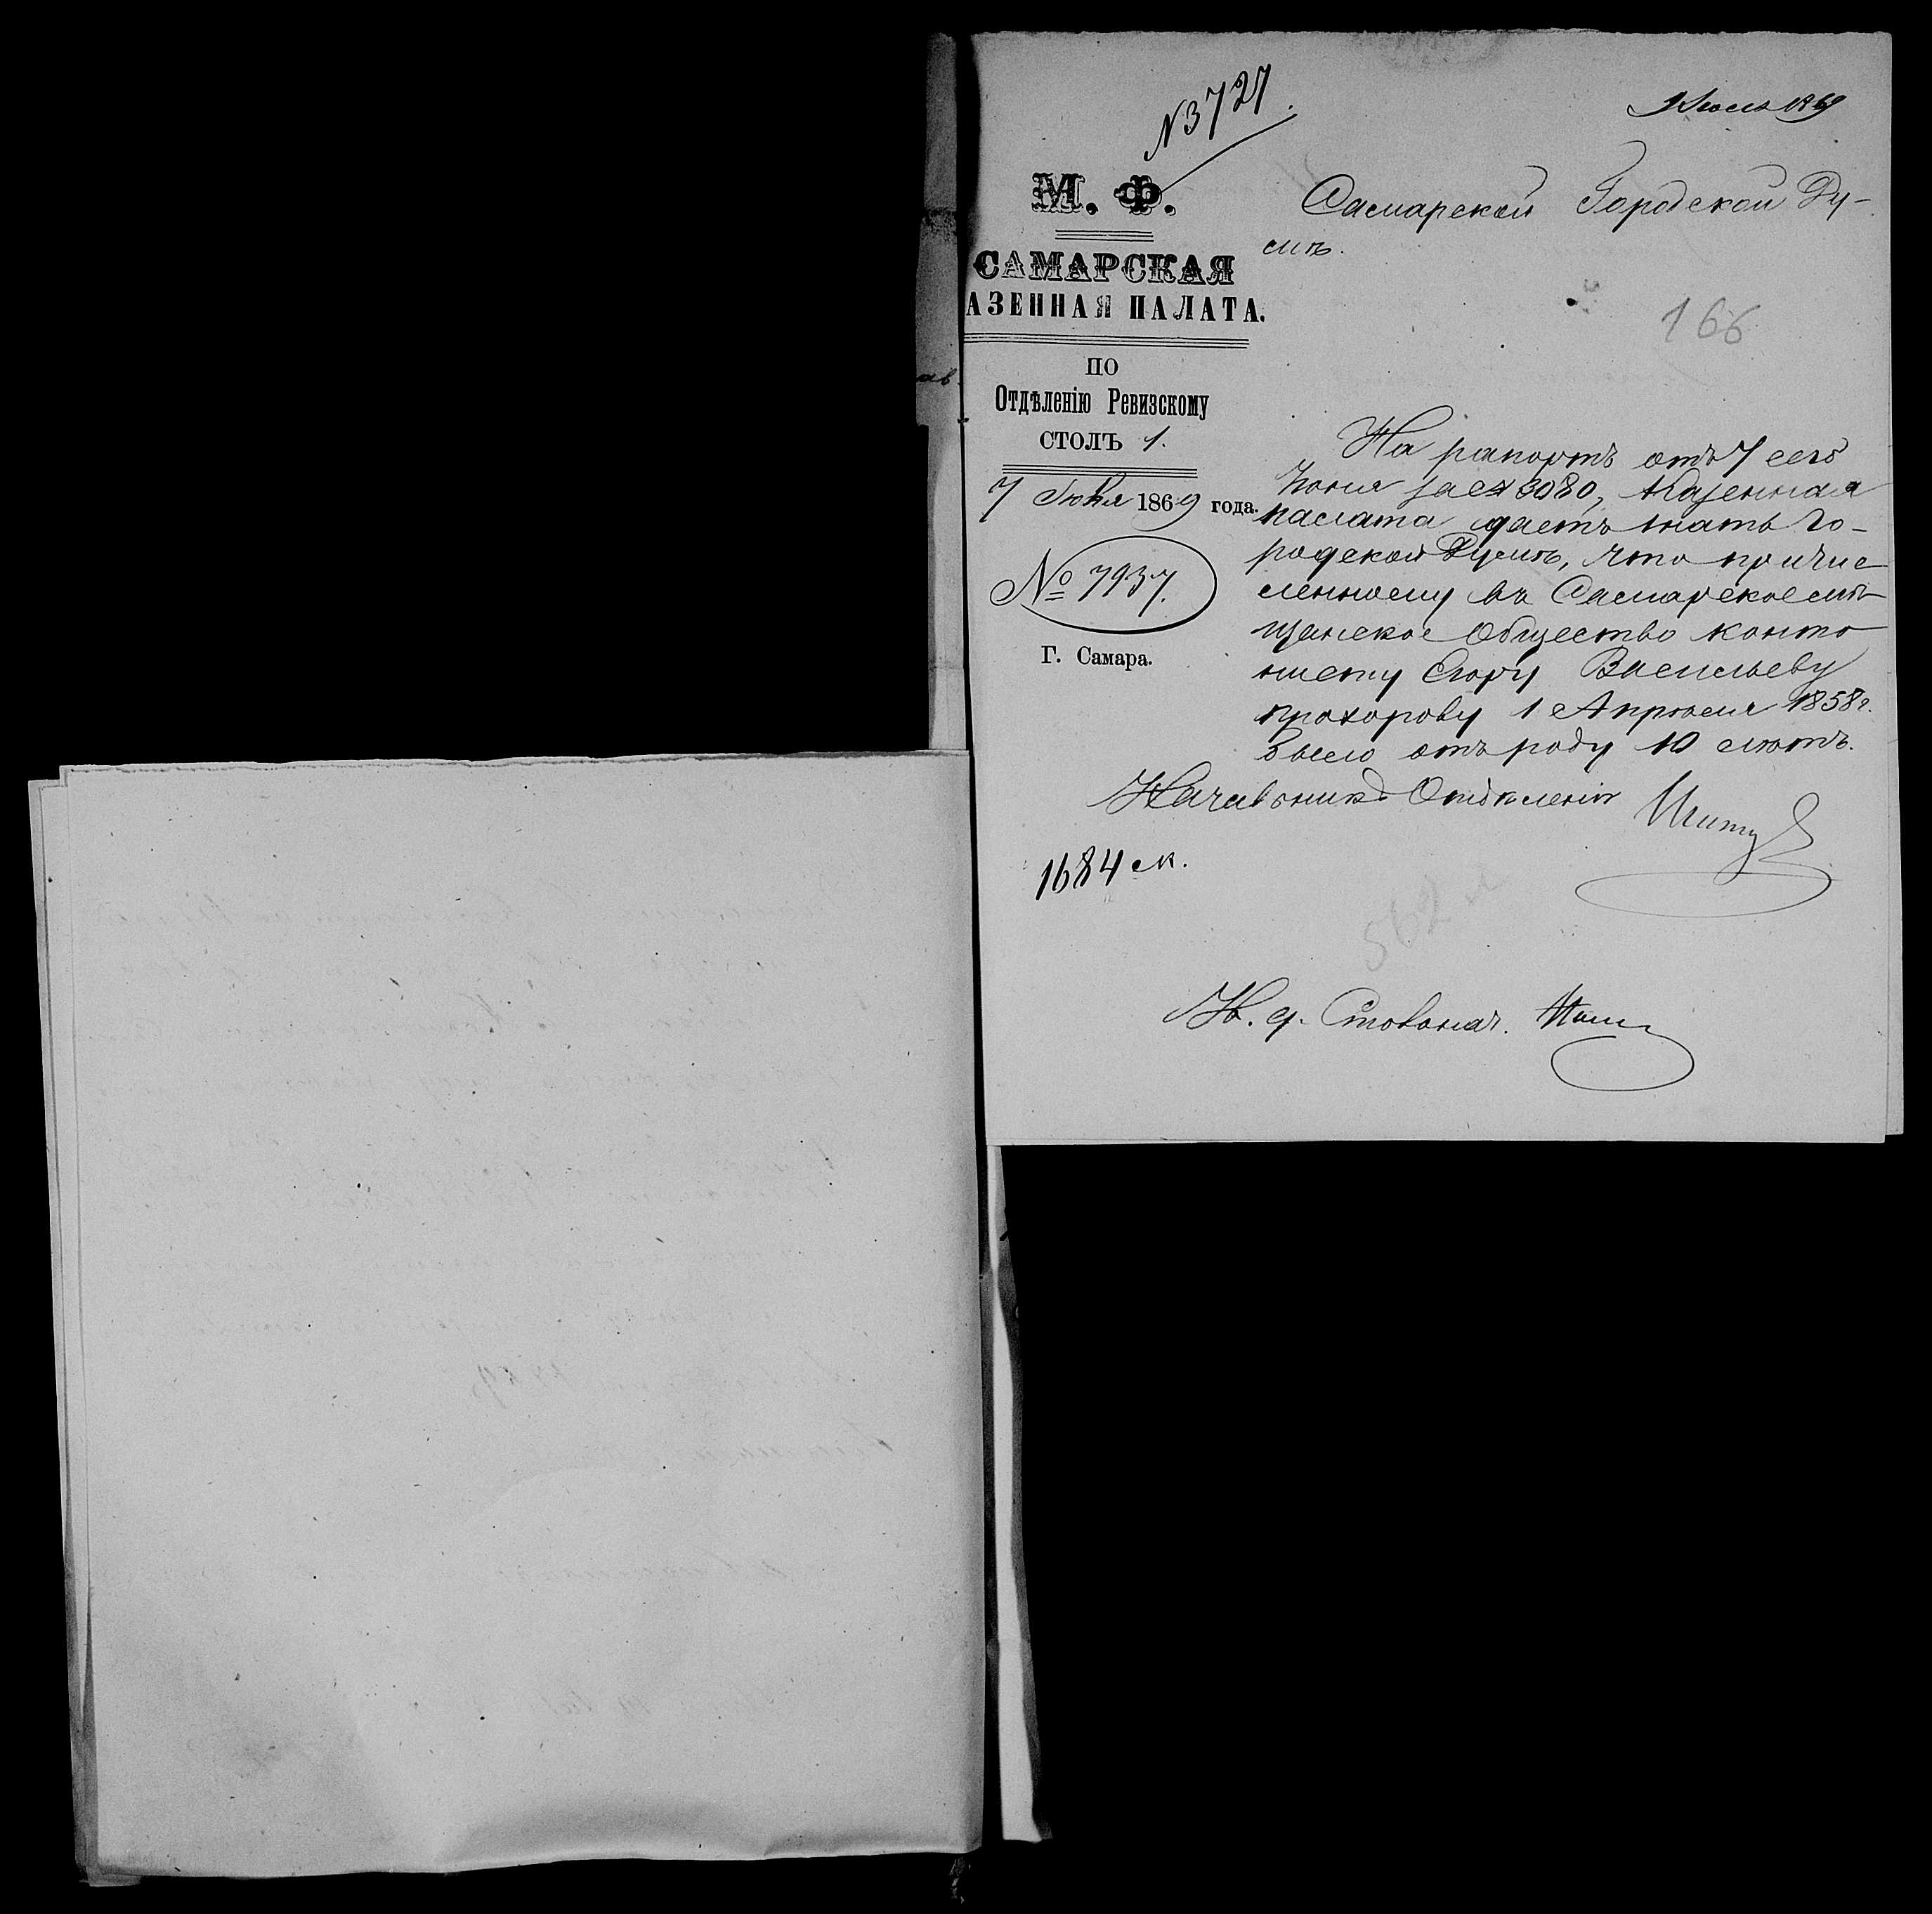 № 3727.
Июля 1869
М. Ф.
САМАРСКАЯ
АЗЕННАЯ ПАЛАТА.
ПО
Отдѣленію Ревизскому
СТОЛЪ 1.
7 Іюля 1869 года.
№ 7937.
Г. Самара.
Самарской Городской Ду-
мѣ.
166
На рапортъ отъ 7 сего
Іюня за № 3080, Казенная
палата даетъ знать Го-
родской Думѣ, что причис
ленному въ Самарское мѣ-
щанское Общество канто
нисту Егору Васильеву
Прохорову 1 Апрѣля 1858 г.
было отъ роду 10 лѣтъ.
Начальникъ Отдѣленія
1684 м.
562 м
И. д. Столонач.